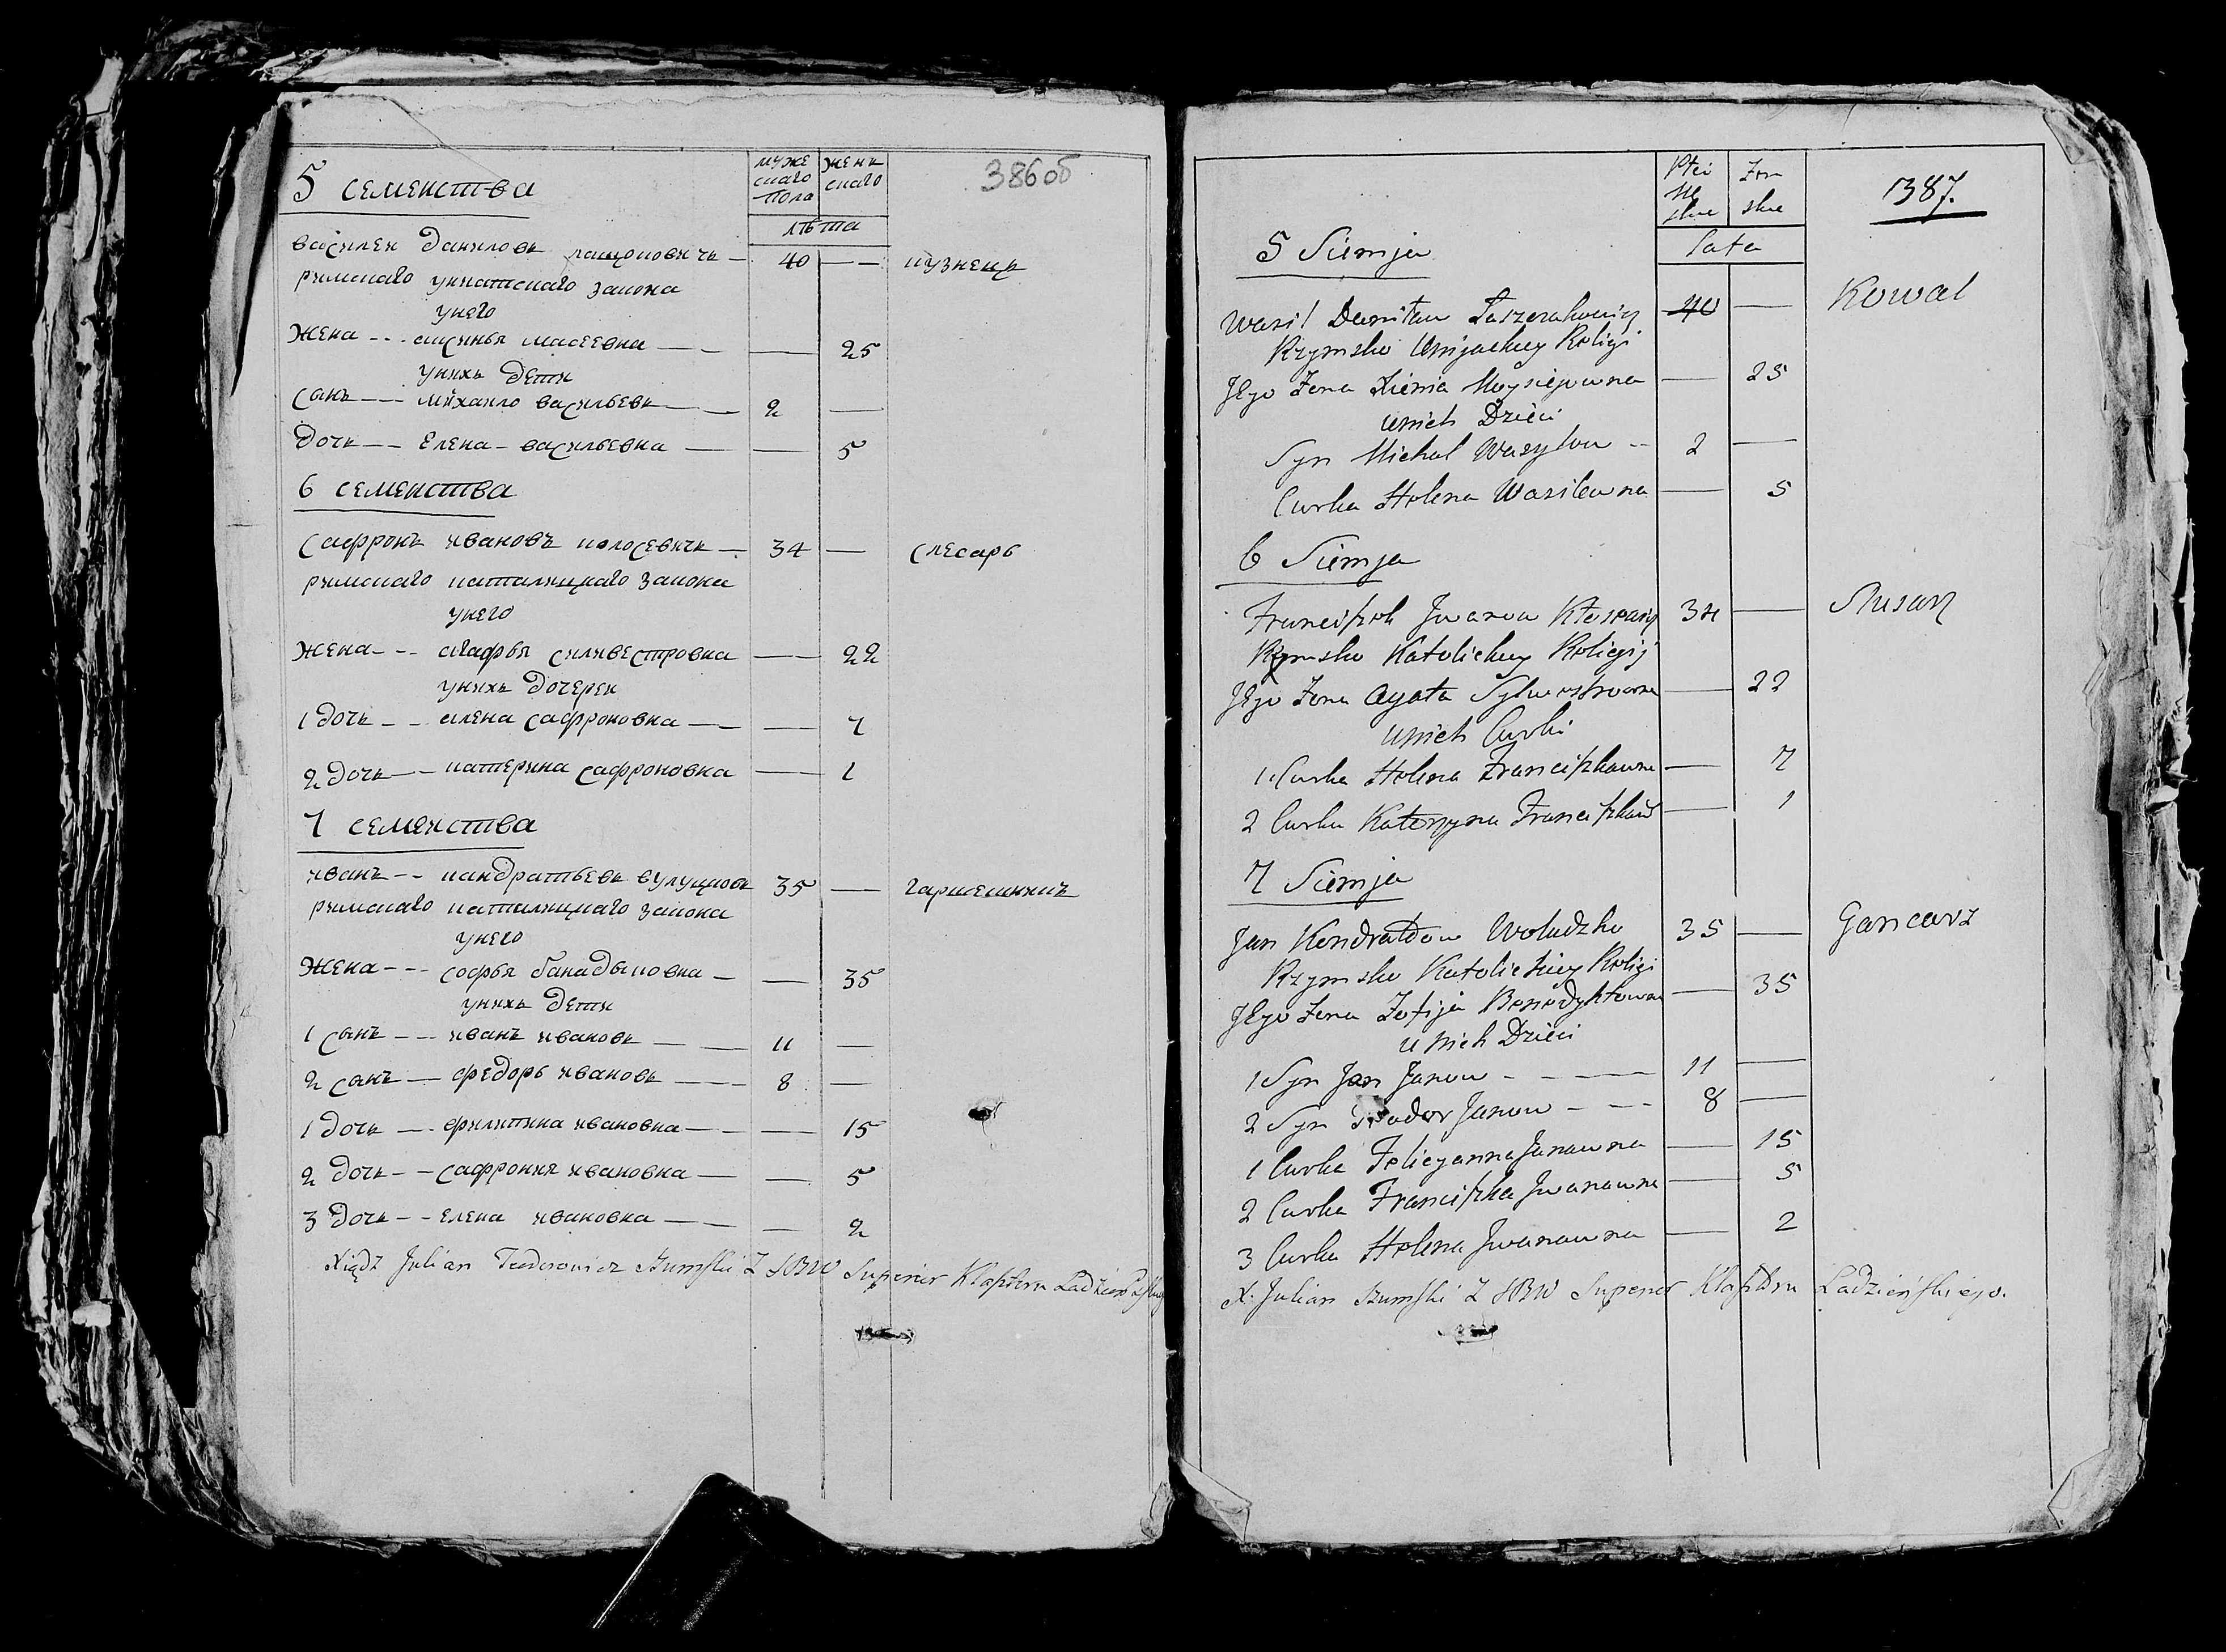 5 семейства
муже
скаго
пола
женс
каго
лѣта
386об
василей даниловъ лащоновичъ — 40 — кузнецъ
римскаго униатскаго закона
унего
жена - - - аксинья масеевна — — 25
унихъ дети
сынъ — михаило васильевъ — 2 —
дочь — елена - васильевна — — 5
6 семейства
сафронъ ивановъ — 34 — слесарь
римскаго католицкаго закона
унего
жена - - агафья силивестровна — 22
унихъ дочерей
1 дочь - - алена сафроновна — — 7
2 дочь — катерина сафроновна — 1
7 семейства
иванъ - - кандратьевъ 35 —
римскаго католицкаго закона
унего
жена - - - софья банадыковна — — 35
унихъ дети
1 сынъ - - - иванъ ивановъ — — 11 —
2 сынъ — федоръ ивановъ — 8 —
1 дочь — филипина ивановна — — 15
2 дочь - - сафрония ивановна — — 5
3 дочь - - елена ивановна — — 2
Xiądz Julian Teodorowicz Szumski Z S B W Superior Klasztoru
Płci
Me
skie
Zen
skie
387.
5 Siemja
Lata
Wasil Daniłow Łaszczakowicz 40 — Kowal
Rzymsko Unijackiey Religi
Jego Zona Xienia Moysiejowna — 25
unich Dzieci
Syn Michał Wasylow - - 2 —
Curka Helena Wasilewna — 5
6 Siemja
Franciszek Jwanow 34 — Slusarz
Rzymsko Katolickiey Religij
Jego Zona Agata Sylwestrowna — 22
unich Curki
1. Curka Helena Franciszkowna — 7
2 Curka Katerzyna Franciszkow — 1
7 Siemja
Jan Kondratow Woludzko 35 — Garncarz
Rzymsko Katolickiey Religi
Jego Zona Zofija Benedyktowna — 35
u nich Dzieci
1 Syn Jan Janow - - - - 11 —
2 Syn Teodor Janow - - - 8 —
1 Curka Felicyanna Janowna — 15
2 Curka Franciszka Jwanowna — 5
3 Curka Helena Jwanowna — 2
X. Julian Szumski Z S B W Superior Klasztoru Ladzieńskiego.